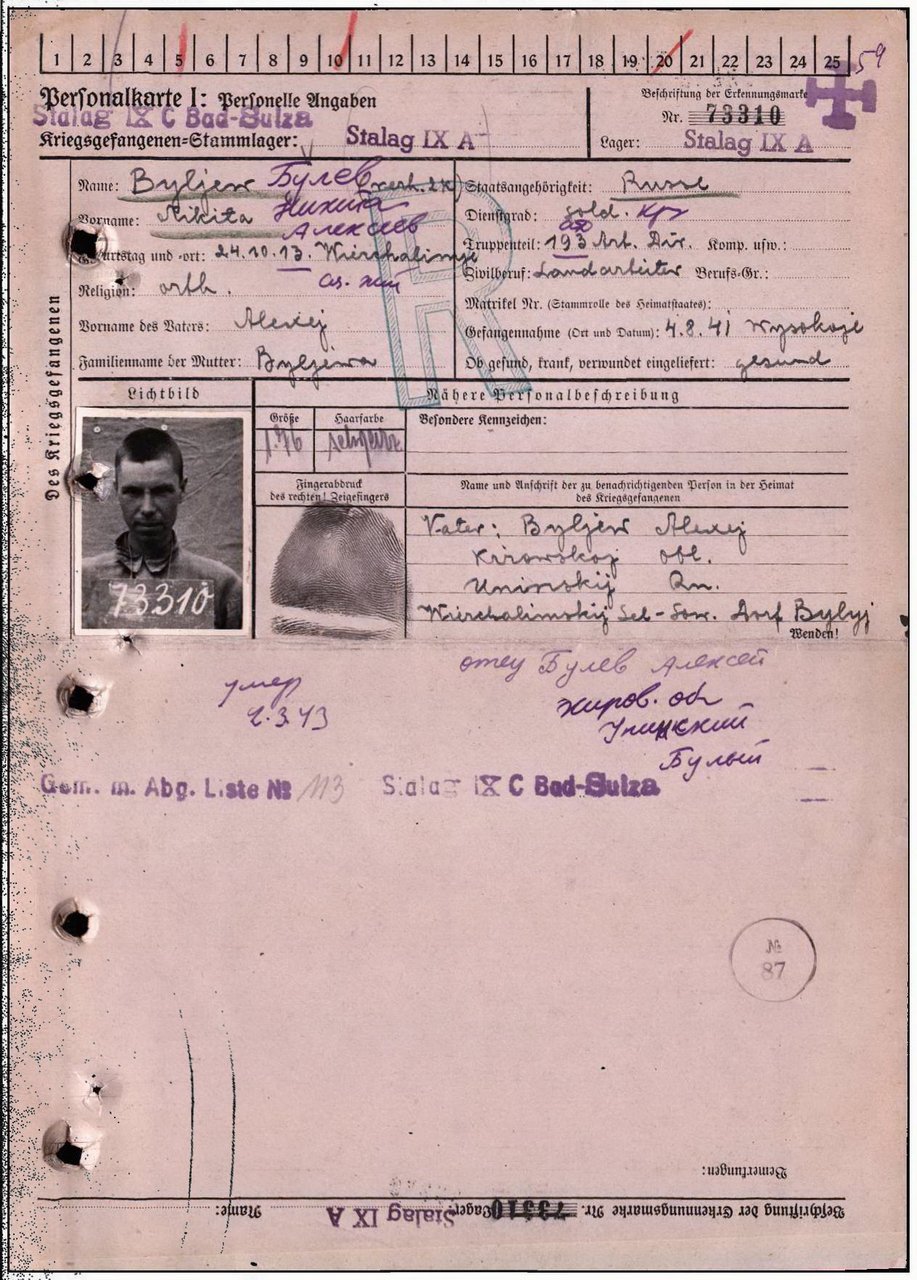 1 2 3 4 5 6 7 8 9 10 11 12 13 14 15 16 17 18 19 20 21 22 23 24 25
59
Personalkarte I: Personelle Angaben
Stalag IX C Bad-Sulza
Kriegsgefangenen-Stammlager: Stalag IX A
Beschriftung der Erkennungsmarke
Nr. 73310
Lager: Stalag IX A
Des Kriegsgefangenen
Name: Byljew Булев
Vorname: Nikita Никита
Алексеев
Geburtstag und -ort: 24.10.13. Wierchalimsje
Religion: orth.
Vorname des Vaters: Alexej
Familienname der Mutter: Byljewa
R
Staatsangehörigkeit: Russe
Dienstgrad: sold. кр
Truppenteil: 193 Art. Div. Komp. usw.:
Zivilberuf: Landarbeiter Berufs-Gr.:
Matrikel Nr. (Stammrolle des Heimatstaates):
Gefangennahme (Ort und Datum): 4.8.41 Wysokoje
Ob gesund, krank, verwundet eingeliefert: gesund
Lichtbild
73310
Nähere Personalbeschreibung
Größe Haarfarbe
1.76 schwarz
Besondere Kennzeichen:
Fingerabdruck
des rechten! Zeigefingers
Name und Anschrift der zu benachrichtigenden Person in der Heimat
des Kriegsgefangenen
Vater: Byljew Alexej
Kirowskoj obl.
Uninskij Rn.
Wierchalimskij Sel-Sow. Dorf Bylyj
Wenden!
отец Булев Алексей
киров. об
Унинский
Булый
умер
2.3.43
Gem. m. Abg. Liste № 113 Stalag IX C Bad-Sulza
№
87
Bemerkungen:
Beschriftung der Erkennungsmarke Nr. 73310 Lager: Stalag IX A Name: